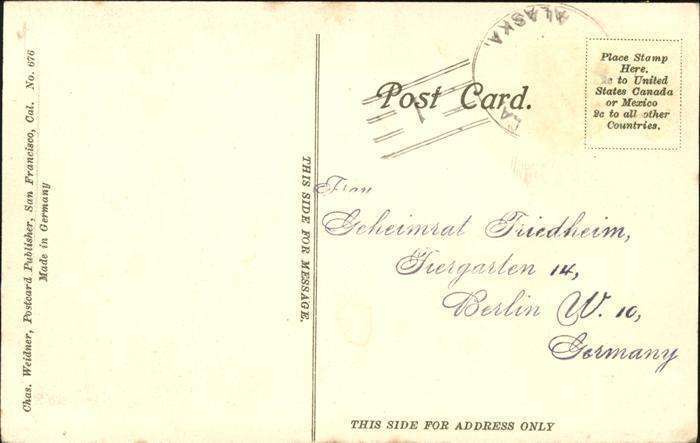 ALASKA.
Post Card.
Place Stamp
Here.
to United
States Canada
or Mexico
2c to all other
Countries.
Chas. Weidner, Postcard Publisher, San Francisco, Cal. No. 676
Made in Germany
THIS SIDE FOR MESSAGE.
Frau
Geheimrat Friedheim,
Tiergarten 14,
Berlin W. 10,
Germany
THIS SIDE FOR ADDRESS ONLY